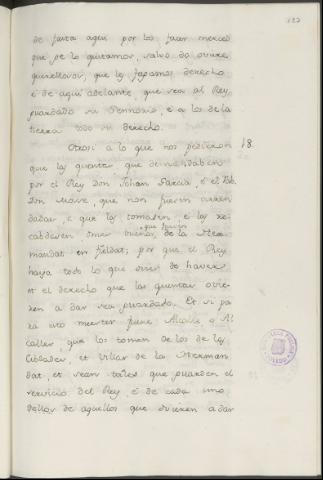 de fasta aqui por los fuar merced
que se lo quitamos, salvo do oviere
querellosos, que les fagamos derecho
é de aqui adelante, que sea al Rey
guardado su Sennorio, é a los de la
tierra todo su derecho.
Otrosi à lo que nos pedieron 18.
que las quentas que demandaben
por el Rey Don Johan Garcia, é el
Don que non fueren
dadas, é que las tomasen, é las re-
cabdasen omes buenos, de la Her-
que fueren
mandat en fieldat; por que el Rey
haya todo lo que oviere de haver
et el derecho que las quentas ovie-
ren a dar sea guardado. Et si pa-
ra esto menester fuere Alcalle o Al
calles, que los tomen de los de las
Cibdades, et Villas de la Herman
dat, et sean tales que guarden el
servicio del Rey, é de cada uno
dellos de aquellos que ovieren a dar